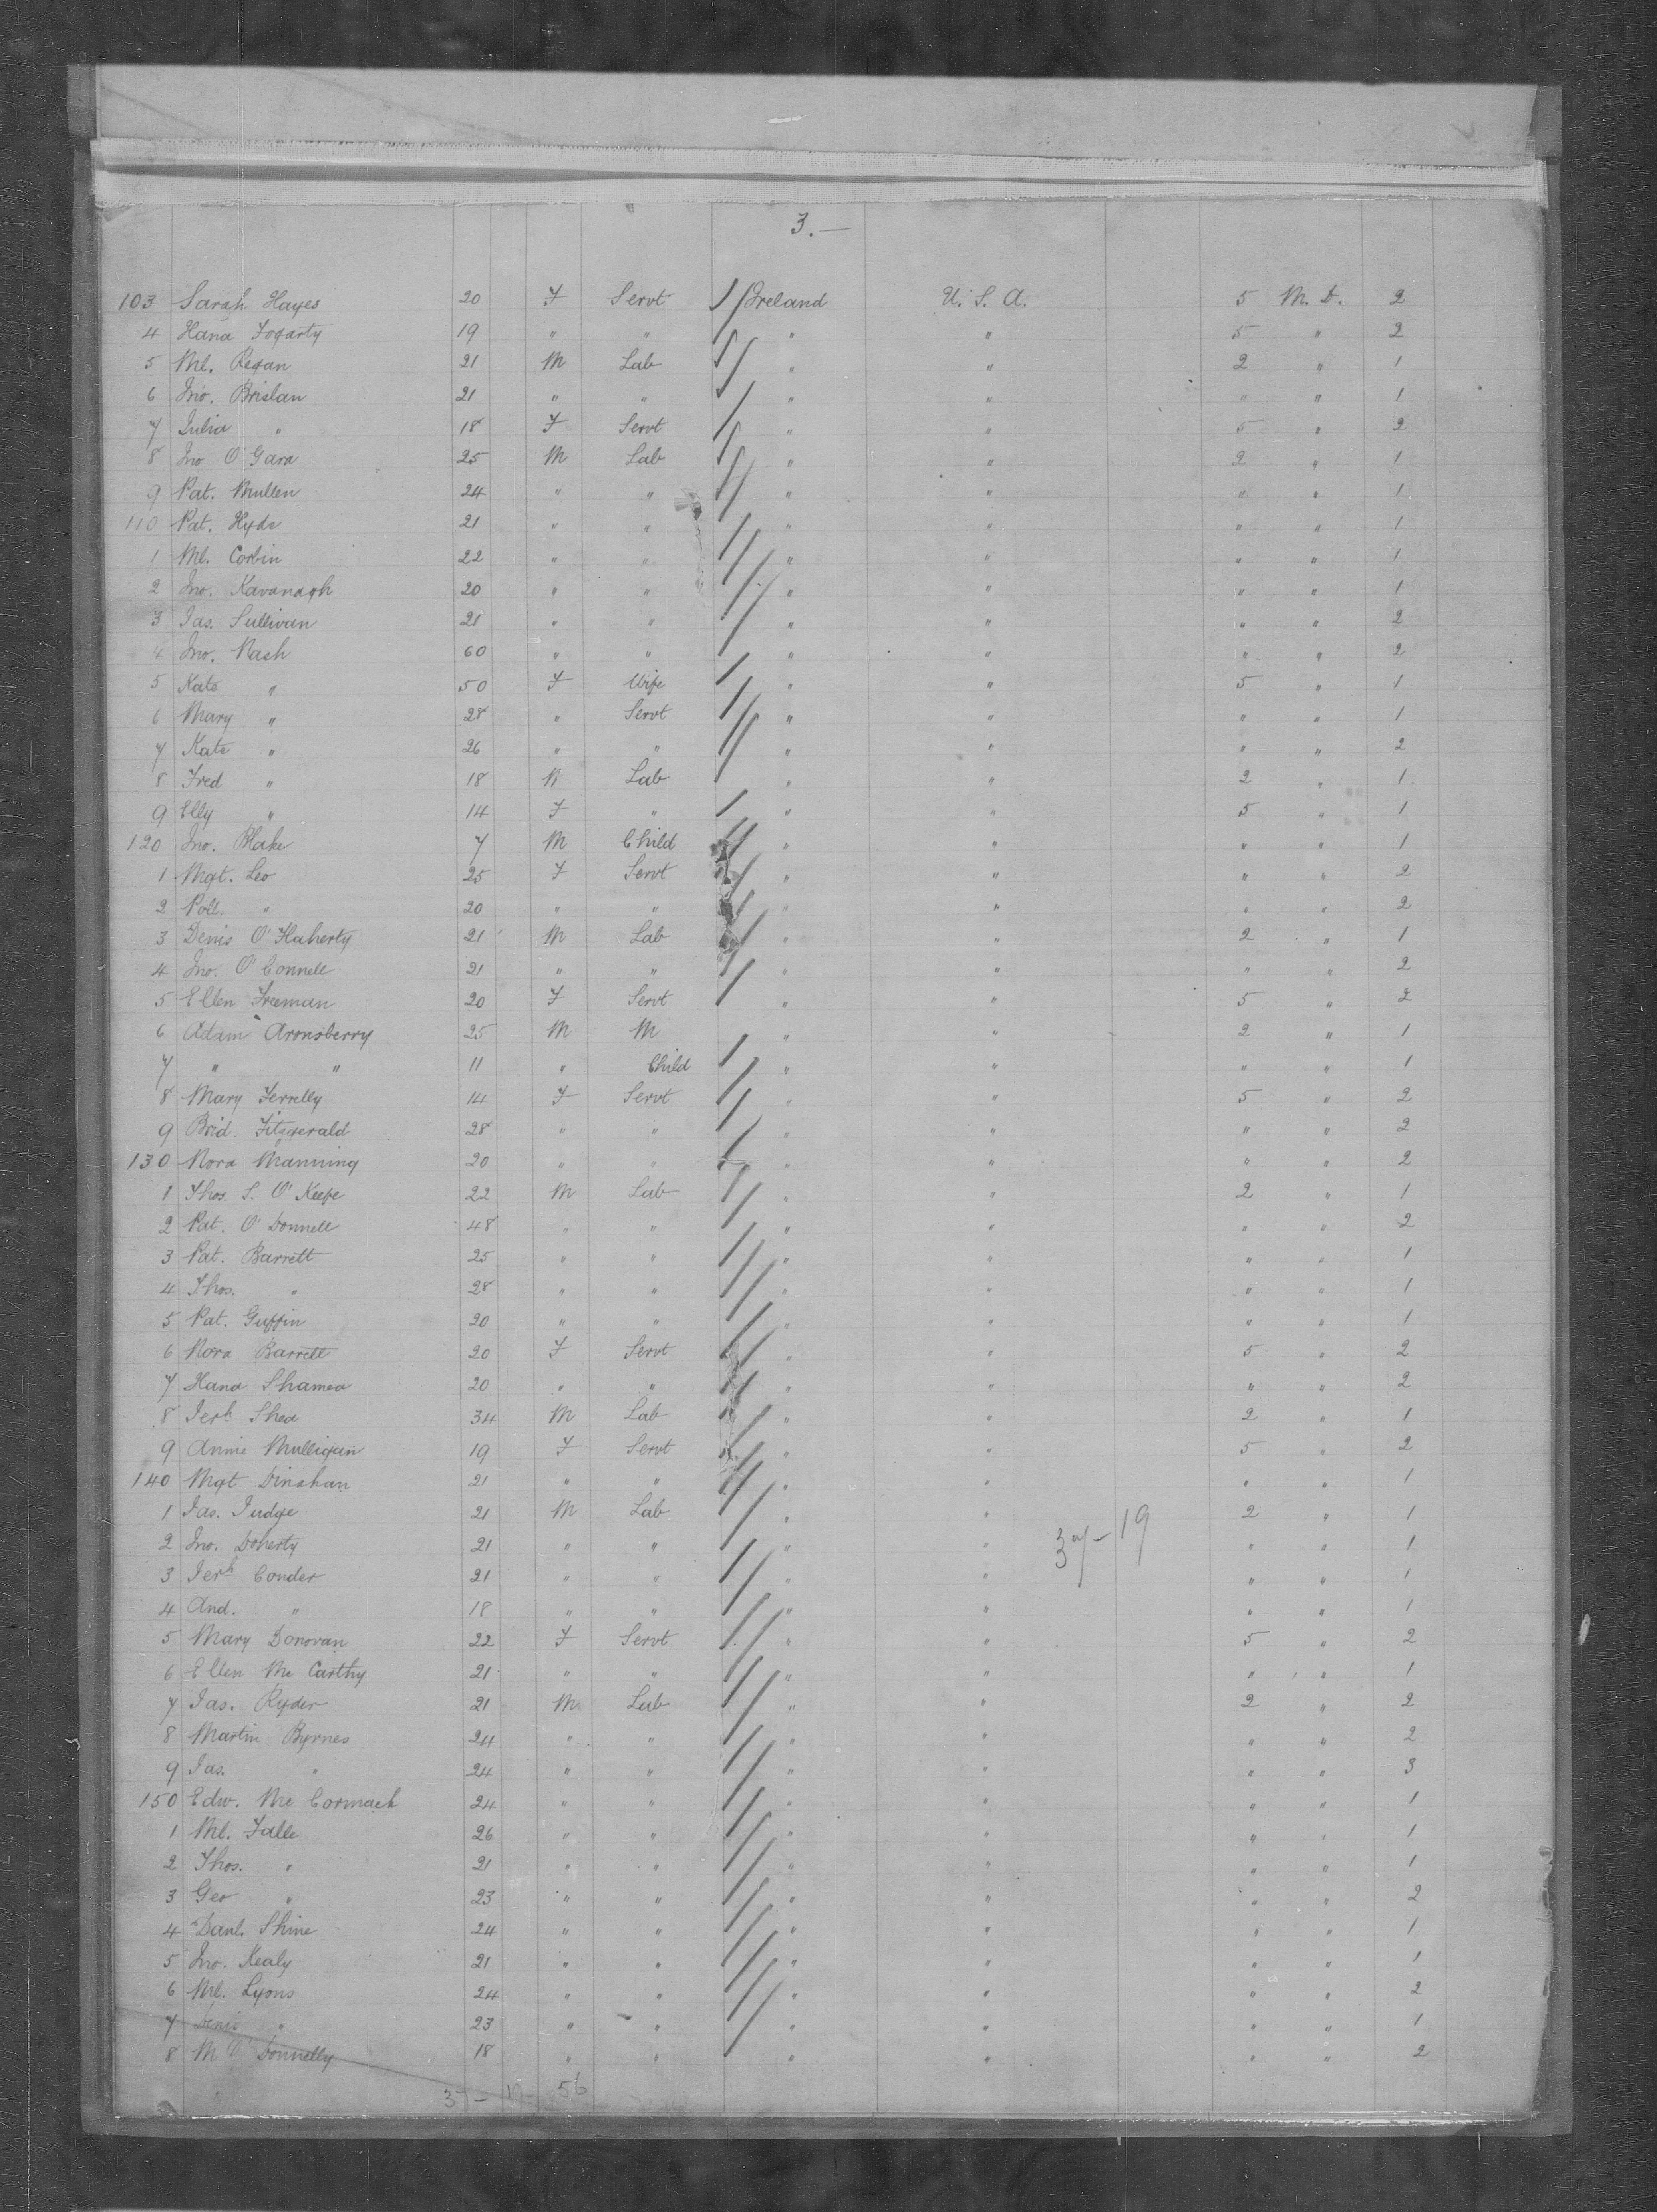 3.—
103 Sarah Hayes 20 F Servt Ireland U. S. A. 5 M. D. 2
4 Hana Fogarty 19 " " " " 5 " 2
5 Ml. Regan 21 M Lab " " 2 " 1
6 Jno. Brislan 21 " " " " " " 1
7 Julia " 18 F Servt " " 5 " 2
8 Jno O'Gara 25 M Lab " " 2 " 1
9 Pat. Mullen 24 " " " " " " 1
110 Pat. Hyde 21 " " " " " " 1
1 Ml. Corbin 22 " " " " " " 1
2 Jno. Kavanagh 20 " " " " " " 1
3 Jas. Sullivan 21 " " " " " " 2
4 Jno. Nash 60 " " " " " " 2
5 Kate " 50 F Wife " " 5 " 1
6 Mary " 28 " Servt " " " " 1
7 Kate " 26 " " " " " " 2
8 Fred " 18 M Lab " " 2 " 1
9 Elly " 14 F " " " 5 " 1
120 Jno. Blake 7 M Child " " " " 1
1 Mgt. Leo 25 F Servt " " " " 2
2 Poll. " 20 " " " " " " 2
3 Denis O'Flaherty 21 M Lab " " 2 " 1
4 Jno. O'Connell 21 " " " " " " 2
5 Ellen Freeman 20 F Servt " " 5 " 2
6 Adam Aronsberry 25 M M " " 2 " 1
7 " " 11 " Child " " " " 1
8 Mary Ferrelly 14 F Servt " " 5 " 2
9 Brid. Fitzgerald 28 " " " " " " 2
130 Nora Manning 20 " " " " " " 2
1 Thos. S. O'Keefe 22 M Lab " " 2 " 1
2 Pat. O'Donnell 48 " " " " " " 2
3 Pat. Barrett 25 " " " " " " 1
4 Thos. " 28 " " " " " " 1
5 Pat. Guffin 20 " " " " " " 1
6 Nora Barrett 20 F Servt " " 5 " 2
7 Hana Shamea 20 " " " " " " 2
8 Jerh Shea 34 M Lab " " 2 " 1
9 Annie Mulligan 19 F Servt " " 5 " 2
140 Mgt Dinahan 21 " " " " " " 1
1 Jas. Judge 21 M Lab " " 2 " 1
37-19
2 Jno. Doherty 21 " " " " " " 1
3 Jerh Conder 21 " " " " " " 1
4 And. " 18 " " " " " " 1
5 Mary Donovan 22 F Servt " " 5 " 2
6 Ellen Mc Carthy 21 " " " " " " 1
7 Jas. Ryder 21 M Lab " " 2 " 2
8 Martin Byrnes 24 " " " " " " 2
9 Jas. " 24 " " " " " " 3
150 Edw. Mc Cormack 24 " " " " " " 1
1 Ml. Falle 26 " " " " " " 1
2 Thos. " 21 " " " " " " 1
3 Geo " 23 " " " " " " 2
4 Danl. Shine 24 " " " " " " 1
5 Jno. Kealy 21 " " " " " " 1
6 Ml. Lyons 24 " " " " " " 2
7 Denis " 23 " " " " " " 1
8 M O'Donnelly 18 " " " " " " 2
56